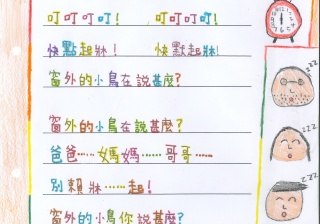 叮叮叮叮！ 叮叮叮叮！
快點起牀！ 快點起牀！
窗外的小鳥在說甚麼？
窗外的小鳥在說甚麼？
爸爸……媽媽……哥哥……
別賴牀……起！
窗外的小鳥你說甚麼？
zzz
zzz
zzz